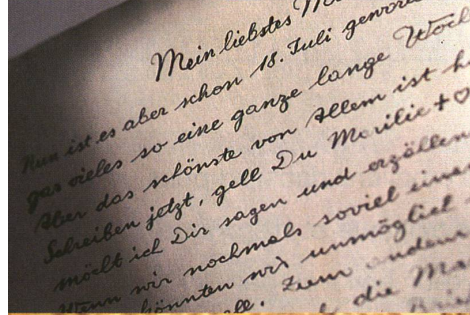 Mein liebstes
Nun ist es aber schon 18. Juli
gar vieles so eine ganze lange
Aber das schönste von Allem ist
Schreiben jetzt, gell Du Marilie + ♡
möcht ich Dir sagen und erzällen
Wenn wir nochmals soviel
könnten wir unmöglich
Zum andern
die